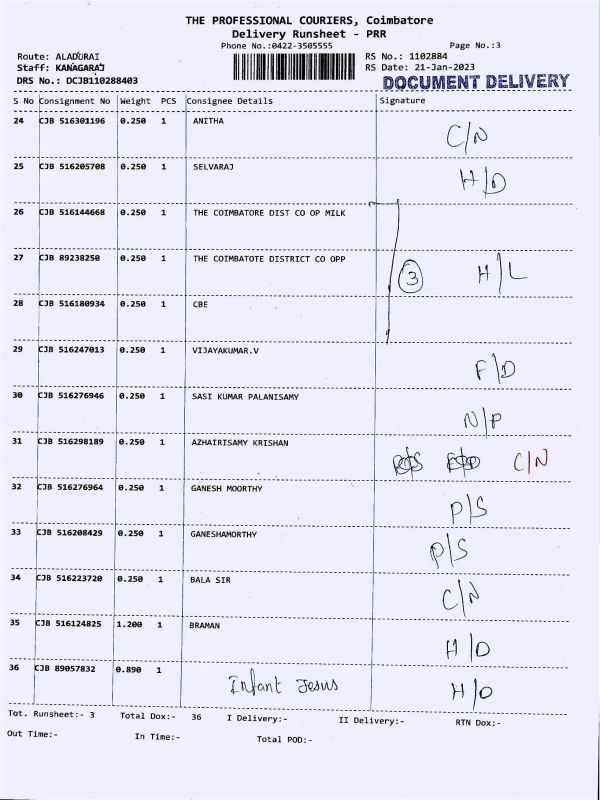 THE PROFESSIONAL COURIERS, Coimbatore
Delivery Runsheet - PRR
Phone No.:0422-3505555 Page No.:3
Route: ALADURAI RS No.: 1102884
Staff: KANAGARAJ RS Date: 21-Jan-2023
DRS No.: DCJB110288403 DOCUMENT DELIVERY
S No Consignment No Weight PCS Consignee Details Signature
24 CJB 516301196 0.250 1 ANITHA C/N
25 CJB 516205708 0.250 1 SELVARAJ H/D
26 CJB 516144668 0.250 1 THE COIMBATORE DIST CO OP MILK
27 CJB 89238250 0.250 1 THE COIMBATOTE DISTRICT CO OPP 3 H/L
28 CJB 516180934 0.250 1 CBE
29 CJB 516247013 0.250 1 VIJAYAKUMAR.V F/D
30 CJB 516276946 0.250 1 SASI KUMAR PALANISAMY N/P
31 CJB 516298189 0.250 1 AZHAIRISAMY KRISHAN C/N
32 CJB 516276964 0.250 1 GANESH MOORTHY P/S
33 CJB 516208429 0.250 1 GANESHAMORTHY P/S
34 CJB 516223720 0.250 1 BALA SIR C/N
35 CJB 516124825 1.200 1 BRAMAN H/D
36 CJB 89057832 0.890 1 Infant Jesus H/D
Tot. Runsheet:- 3 Total Dox:- 36 I Delivery:- II Delivery:- RTN Dox:-
Out Time:- In Time:- Total POD:-